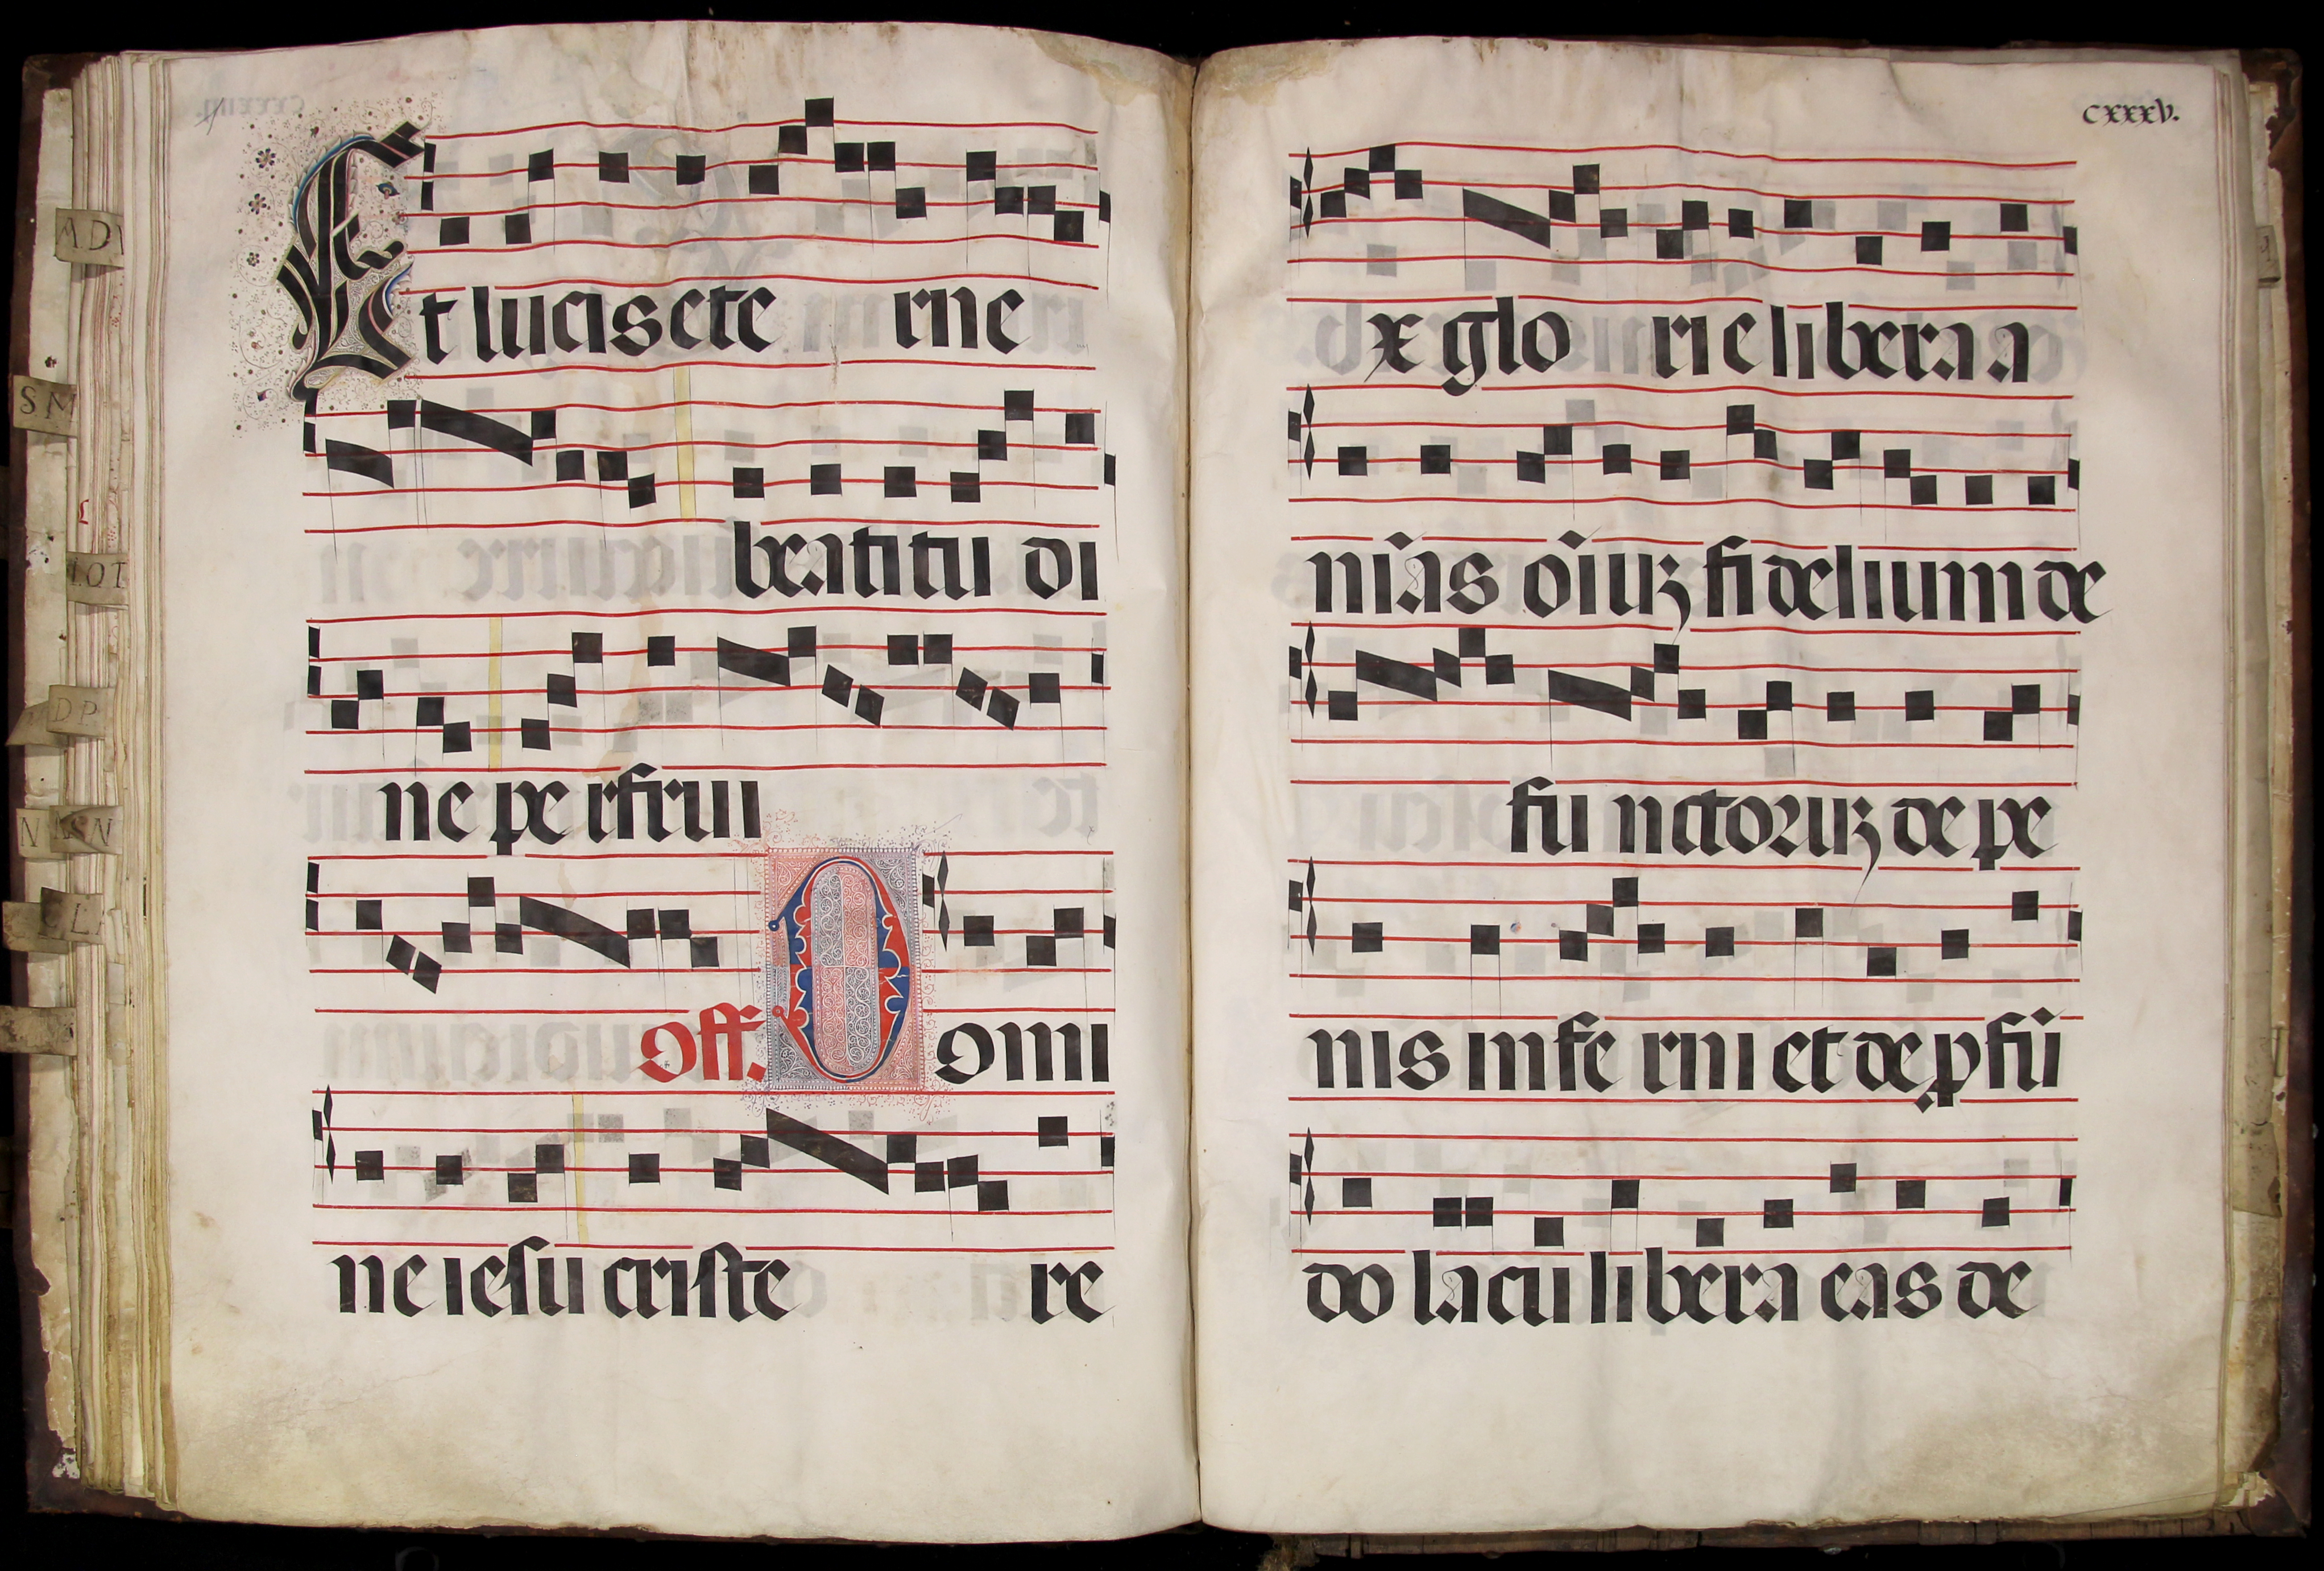 Et lucis ete rne
beatitu di
ne pe rfrui
Off. Domi
ne iesu criste re
cxxxv.
x glo rie libera a
nĩas oĩuʒ fidelium de
fu nctoruʒ de pe
nis infe rni et de ꝓfũ
do lacu libera eas de
ADV
SM
LOT
DP
N
SN
L